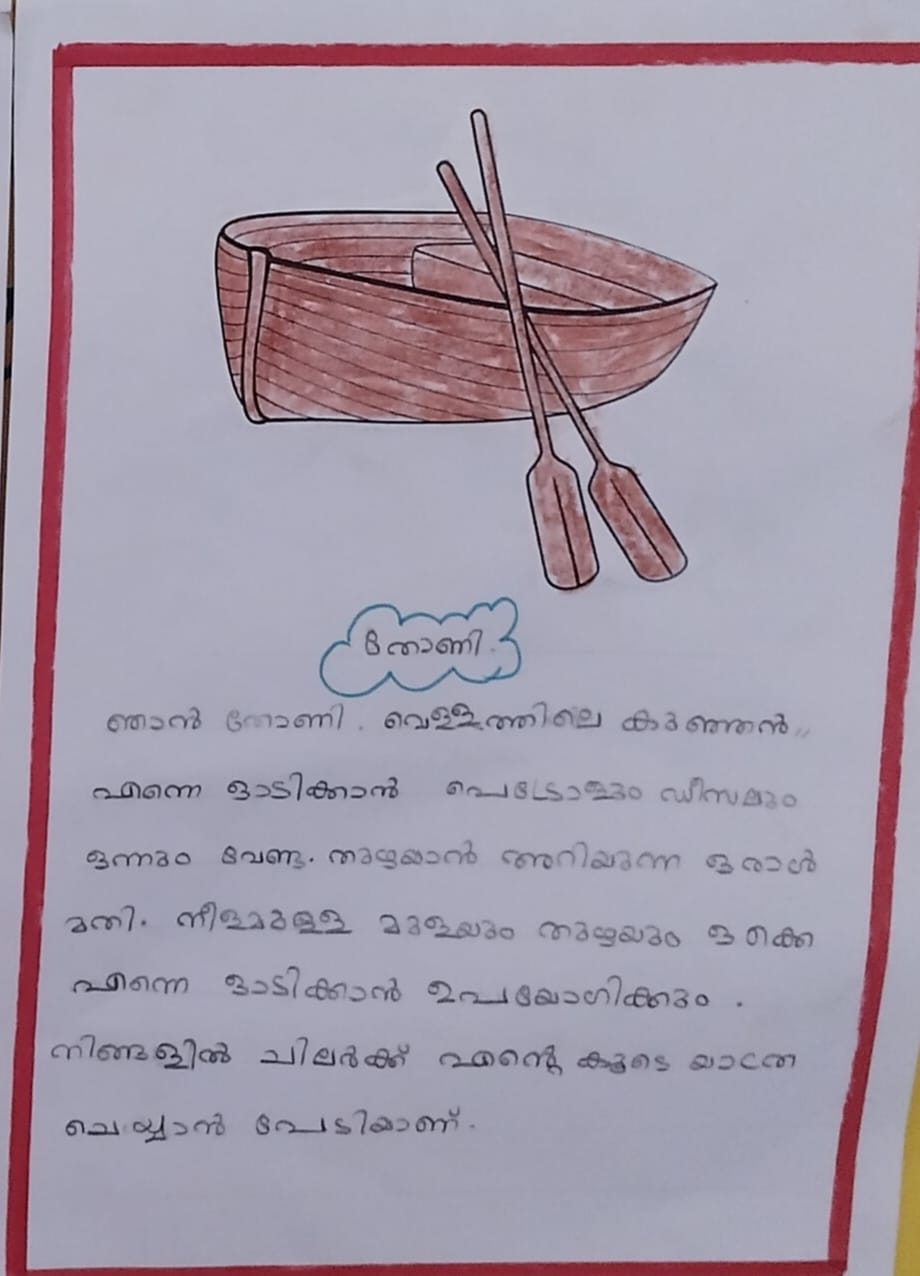 തോണി.
ഞാൻ തോണി. വെള്ളത്തിലെ കുഞ്ഞൻ,,
എന്നെ ഓടിക്കാൻ പെട്രോളും ഡീസലും
ഒന്നും വേണ്ട. തുഴയാൻ അറിയുന്ന ഒരാൾ
മതി. നീളമുള്ള മുളയും തുഴയും ഒക്കെ
എന്നെ ഓടിക്കാൻ ഉപയോഗിക്കും .
നിങ്ങളിൽ ചിലർക്ക് എന്റെ കൂടെ യാത്ര
ചെയ്യാൻ പേടിയാണ്.